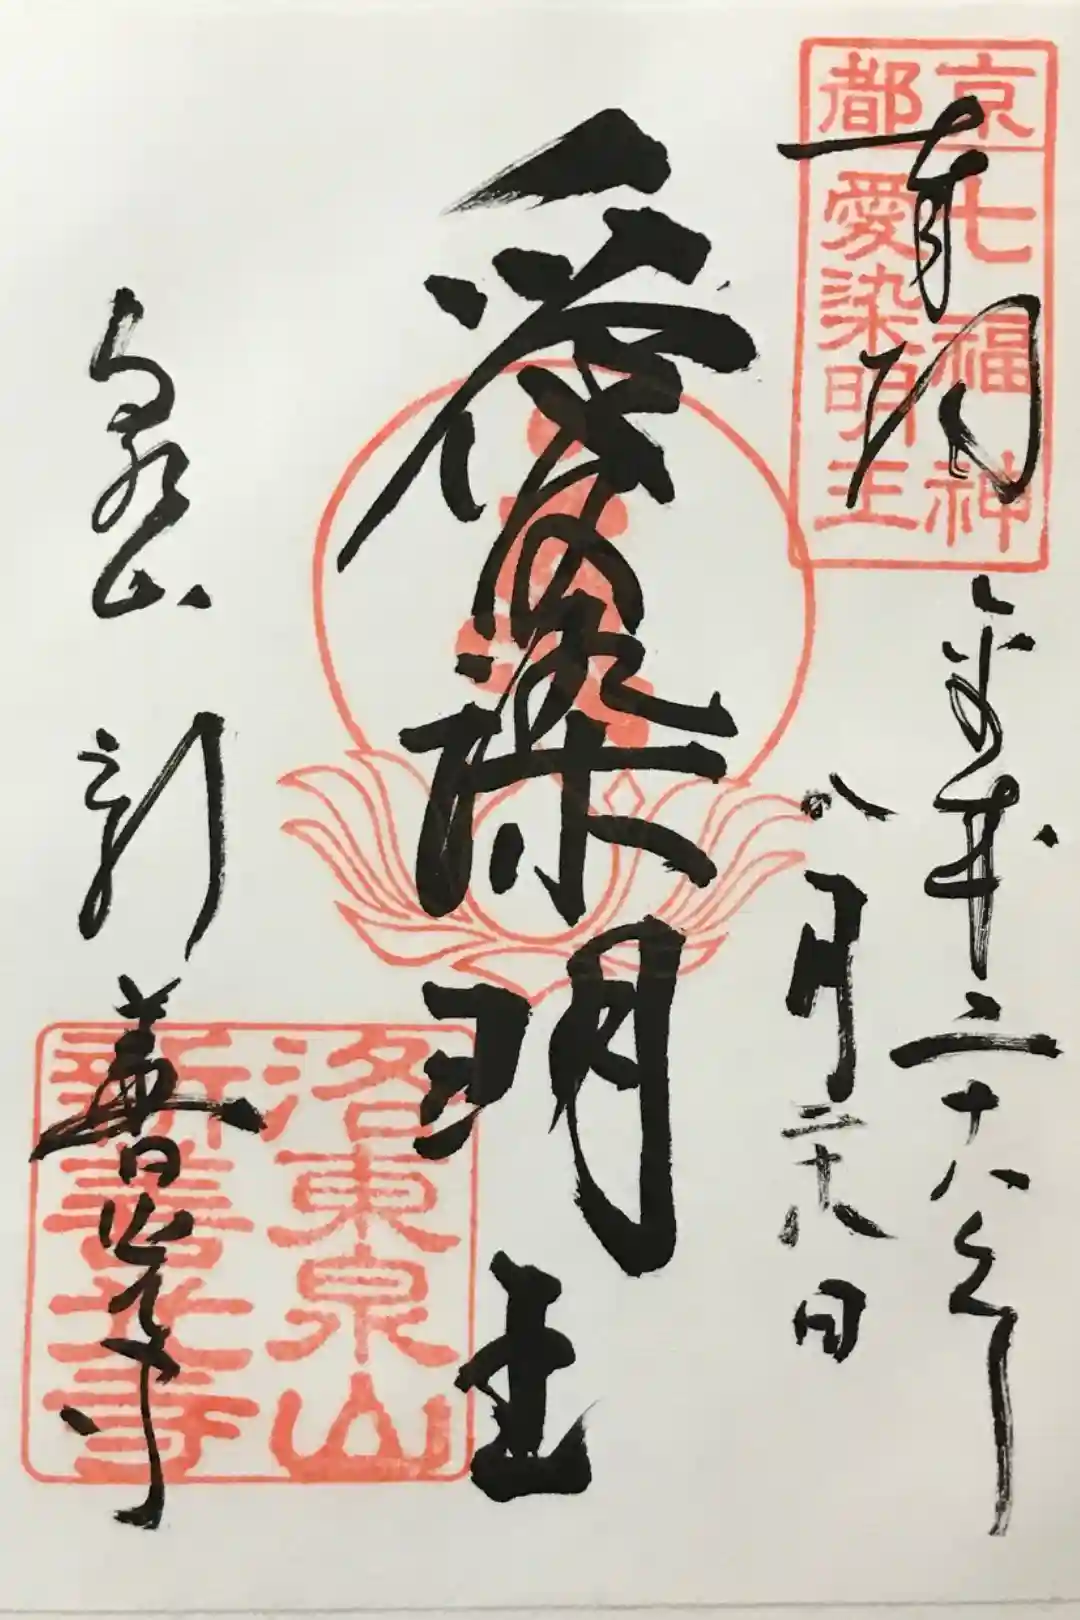 京都 七福神
愛染明王
奉拝
平成二十八年
八月二十八日
愛染明王
泉山 新善光寺
洛東泉山
新善光寺